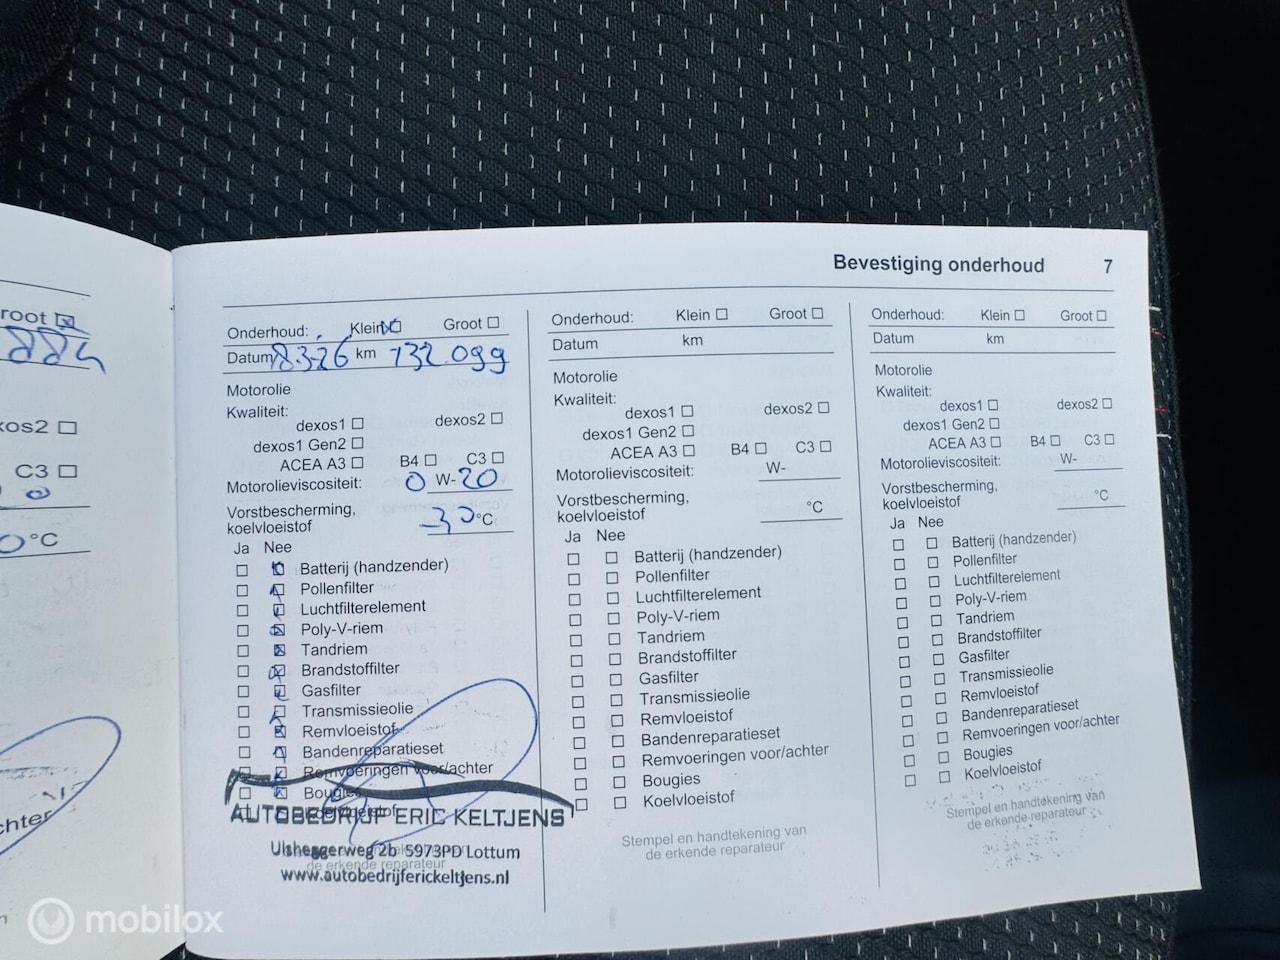 root
884
xos2
C3
0
0 °C
chter
Bevestiging onderhoud 7
Onderhoud: Klein Groot
Datum 18.3.26 km 132.099
Motorolie
Kwaliteit:
dexos1 dexos2
dexos1 Gen2
ACEA A3 B4 C3
Motorolieviscositeit: 0 W- 20
Vorstbescherming,
koelvloeistof -30 °C
Ja Nee
Batterij (handzender)
Pollenfilter
Luchtfilterelement
Poly-V-riem
Tandriem
Brandstoffilter
Gasfilter
Transmissieolie
Remvloeistof
Bandenreparatieset
Remvoeringen voor/achter
Bougies
Koelvloeistof
AUTOBEDRIJF ERIC KELTJENS
2b 5973PD Lottum
de erkende reparateur
www.autobedrijferickeltjens.nl
Onderhoud: Klein Groot
Datum km
Motorolie
Kwaliteit:
dexos1 dexos2
dexos1 Gen2
ACEA A3 B4 C3
Motorolieviscositeit: W-
Vorstbescherming,
koelvloeistof °C
Ja Nee
Batterij (handzender)
Pollenfilter
Luchtfilterelement
Poly-V-riem
Tandriem
Brandstoffilter
Gasfilter
Transmissieolie
Remvloeistof
Bandenreparatieset
Remvoeringen voor/achter
Bougies
Koelvloeistof
Stempel en handtekening van
de erkende reparateur
Onderhoud: Klein Groot
Datum km
Motorolie
Kwaliteit:
dexos1 dexos2
dexos1 Gen2
ACEA A3 B4 C3
Motorolieviscositeit: W-
Vorstbescherming,
koelvloeistof °C
Ja Nee
Batterij (handzender)
Pollenfilter
Luchtfilterelement
Poly-V-riem
Tandriem
Brandstoffilter
Gasfilter
Transmissieolie
Remvloeistof
Bandenreparatieset
Remvoeringen voor/achter
Bougies
Koelvloeistof
Stempel en handtekening van
de erkende reparateur
mobilox